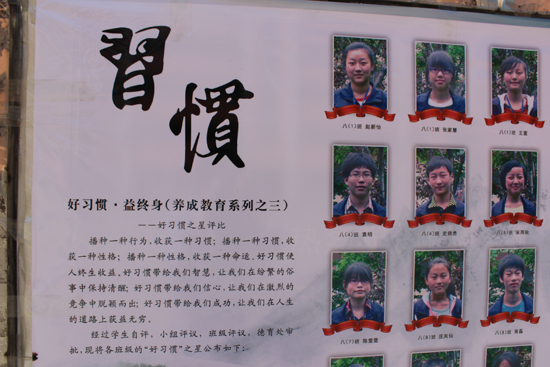 習慣
好习惯·益终身(养成教育系列之三)
——好习惯之星评比
播种一种行为,收获一种习惯;播种一种习惯,收
获一种性格;播种一种性格,收获一种命运。好习惯使
人终生收益。好习惯带给我们智慧,让我们在纷繁的俗
事中保持清醒;好习惯带给我们信心,让我们在激烈的
竞争中脱颖而出;好习惯带给我们成功,让我们在人生
的道路上获益无穷。
经过学生自评、小组评议、班级评议、德育处审
批,现将各班级的“好习惯”之星公布如下:
八(1)班
八(1)班
八(1)班 王寰
八(4)班 袁明
八(4)班
八(7)班
八(8)班